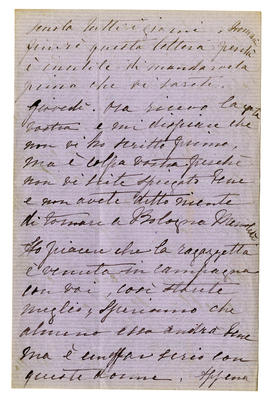 tutti i giorni. Domani
finirò questa lettera perché
è inutile di mandarvela
prima che vi sarete.
Giovedì. Ora ricevo la
vostra e mi dispiace che
non vi ho scritto prima,
ma è colpa vostra perché
non vi siete spiegato bene
e non avete detto niente
di tornare a Bologna
Ho piacere che la ragazzetta
è venuta in campagna
con voi, così starete
meglio, speriamo che
almeno essa andrà bene
ma è un affar serio con
queste donne. Appena